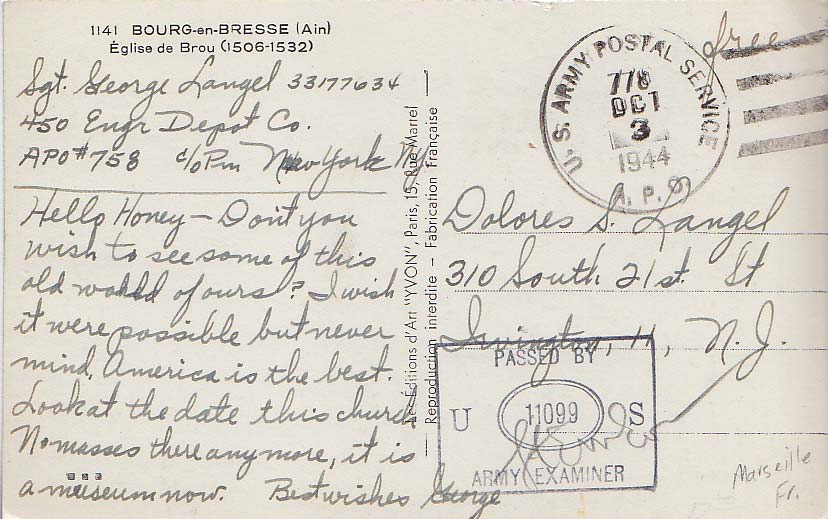 1141 BOURG-en-BRESSE (Ain)
Église de Brou (1506-1532)
Sgt. George Langel 33177634
450 Engr Depot Co.
APO #758 c/o Pm New York NY.
Hello Honey – Don't you
wish to see some of this
old world of ours? I wish
it were possible but never
mind, America is the best.
Look at the date this church
No masses there anymore, it is
a museum now. Best wishes George
Les Éditions d'Art "YVON", Paris, 15, Rue Martel
Reproduction interdite – Fabrication Française
free
U.S. ARMY POSTAL SERVICE
778
OCT
3
1944
A.P.O.
Dolores S. Langel
310 South 21st. St
Irvington, 11, N.J.
PASSED BY
U 11099 S
ARMY EXAMINER
Marseille
Fr.